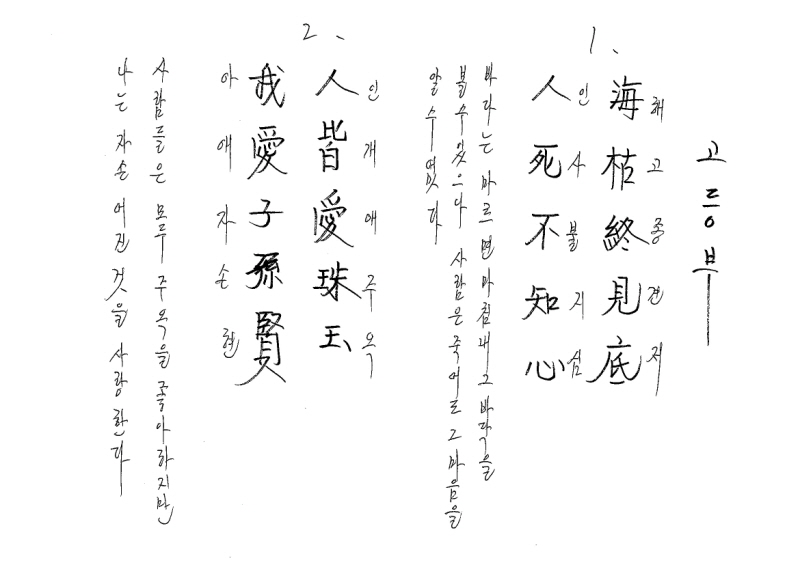 고등부
1、
海枯終見底
해고종견저
人死不知心
인사불지심
바다는 마르면 마침내 그 바닥을
볼 수 있으나 사람은 죽어도 그 마음을
알 수 없다
2、
人皆愛珠玉
인개애주옥
我愛子孫賢
아애자손현
사람들은 모두 주옥을 좋아하지만
나는 자손 어진 것을 사랑한다